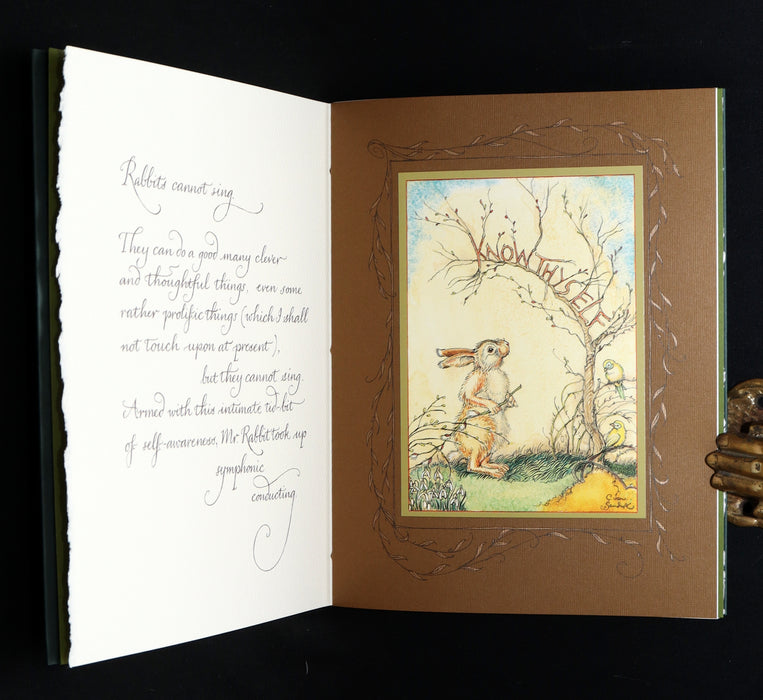 Rabbits cannot sing.
They can do a good many clever
and thoughtful things, even some
rather prolific things (which I shall
not touch upon at present),
but they cannot sing.
Armed with this intimate tid-bit
of self-awareness, Mr Rabbit took up
symphonic
conducting.
KNOW THYSELF